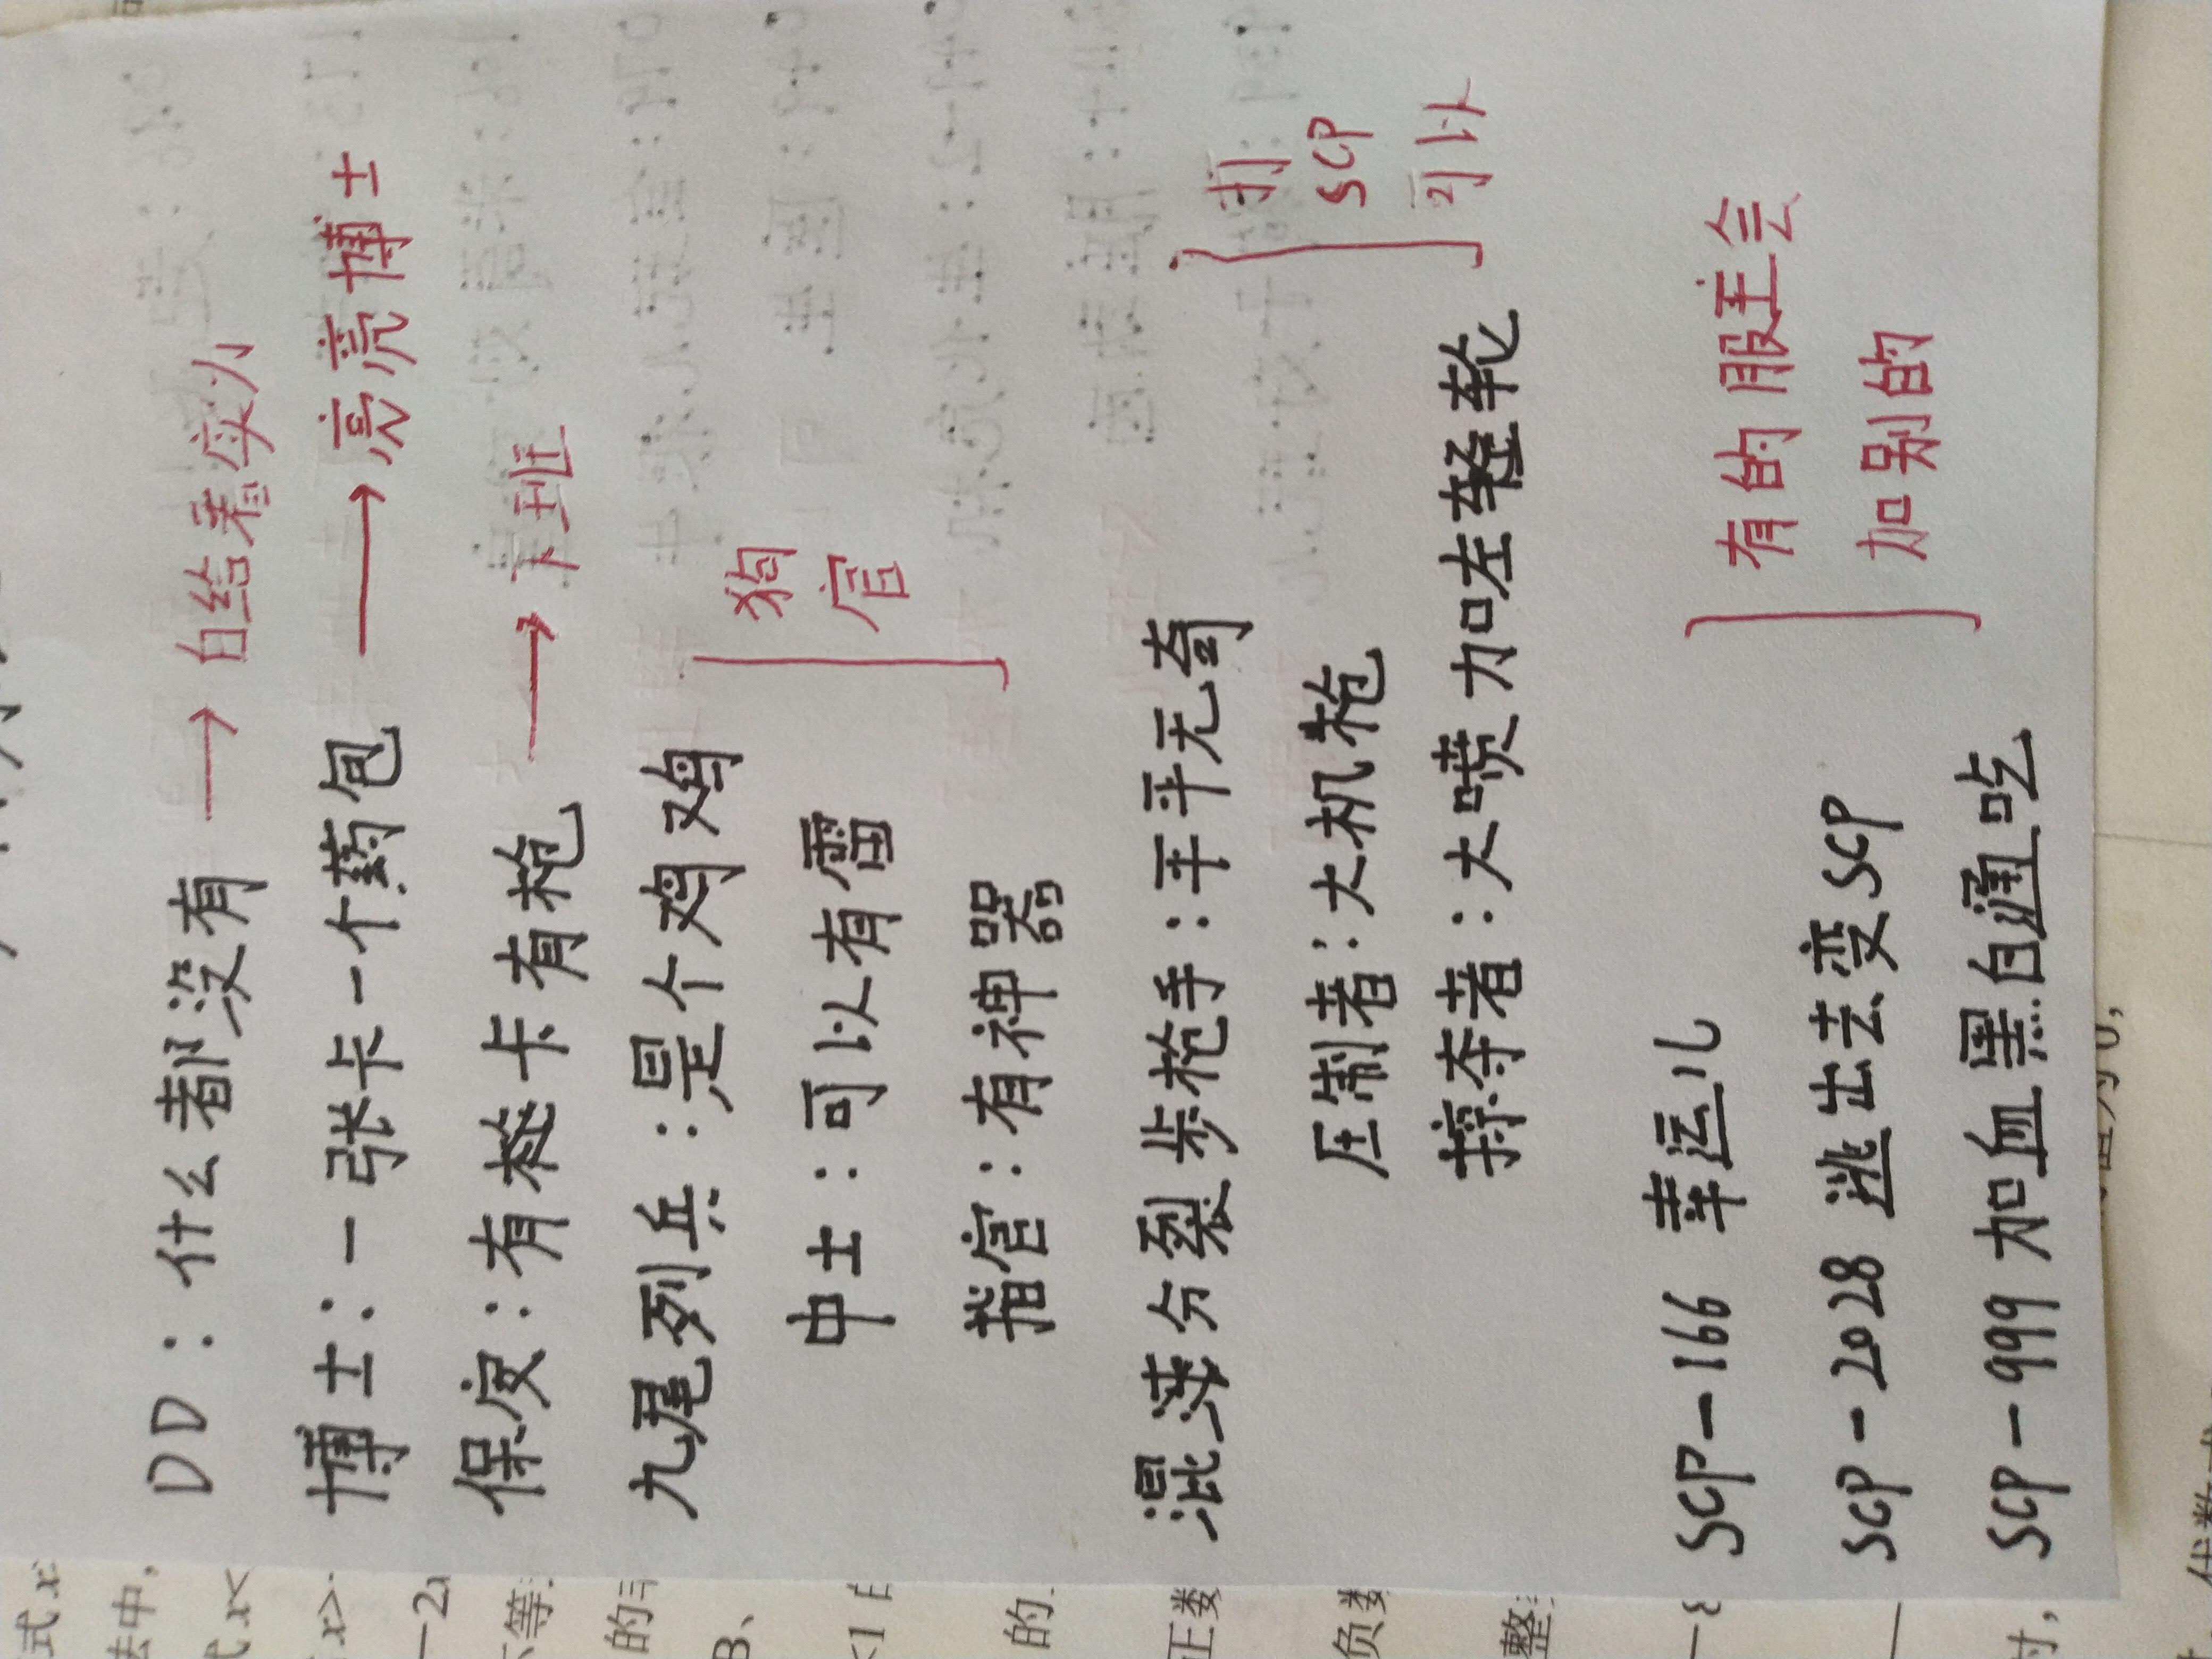 DD：什么都没有 → 白给看实力
博士：一张卡一个药包 → 亮亮博士
保安：有枪卡有枪 → 卡班
九尾列兵：是个鸡鸡
中士：可以有雷
指官：有神器
狗
官
混沌分裂步枪手：平平无奇
压制者：大机枪
掠夺者：大喷加左轮
打
SCP
可以
SCP-166 幸运儿
SCP-2028 逃出去变SCP
SCP-999 加血黑白通吃
有的服主会
加别的